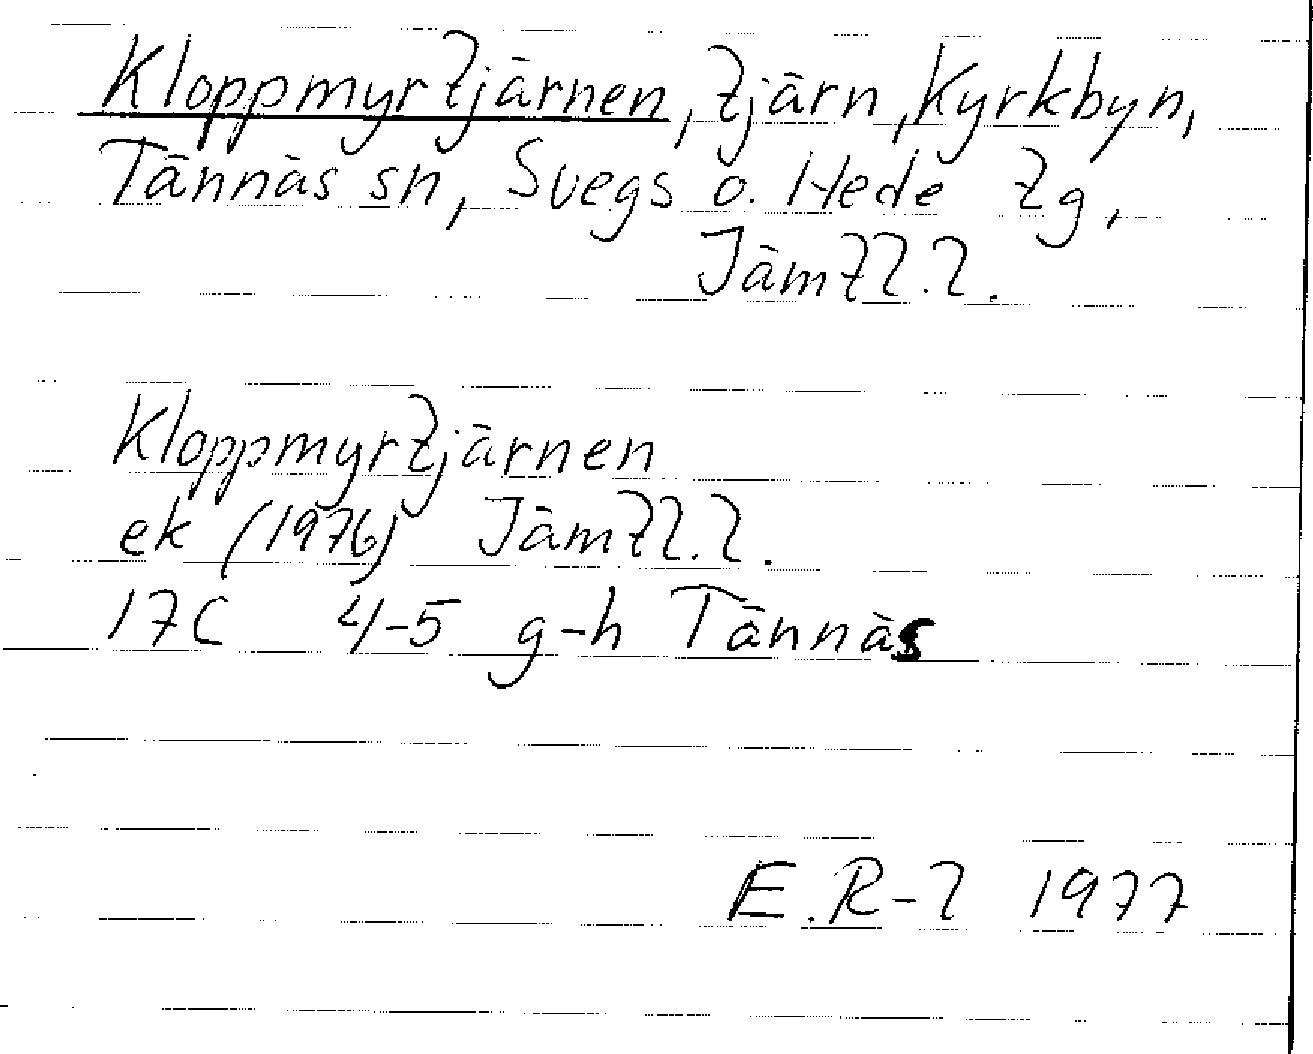 Kloppmyrtjärnen, tjärn, Kyrkbyn,
Tännäs sn, Svegs o. Hede tg,
Jämtl.l.
Kloppmyrtjärnen
ek (1976) Jämtl.l.
17C 4-5 g-h Tännäs
E.R-l 1977